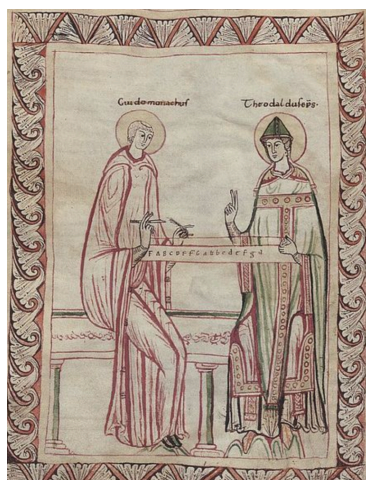 Guido monachus
Theodaldus ep̄s.
Γ A B C D E F G a b ♮ c d e f g d